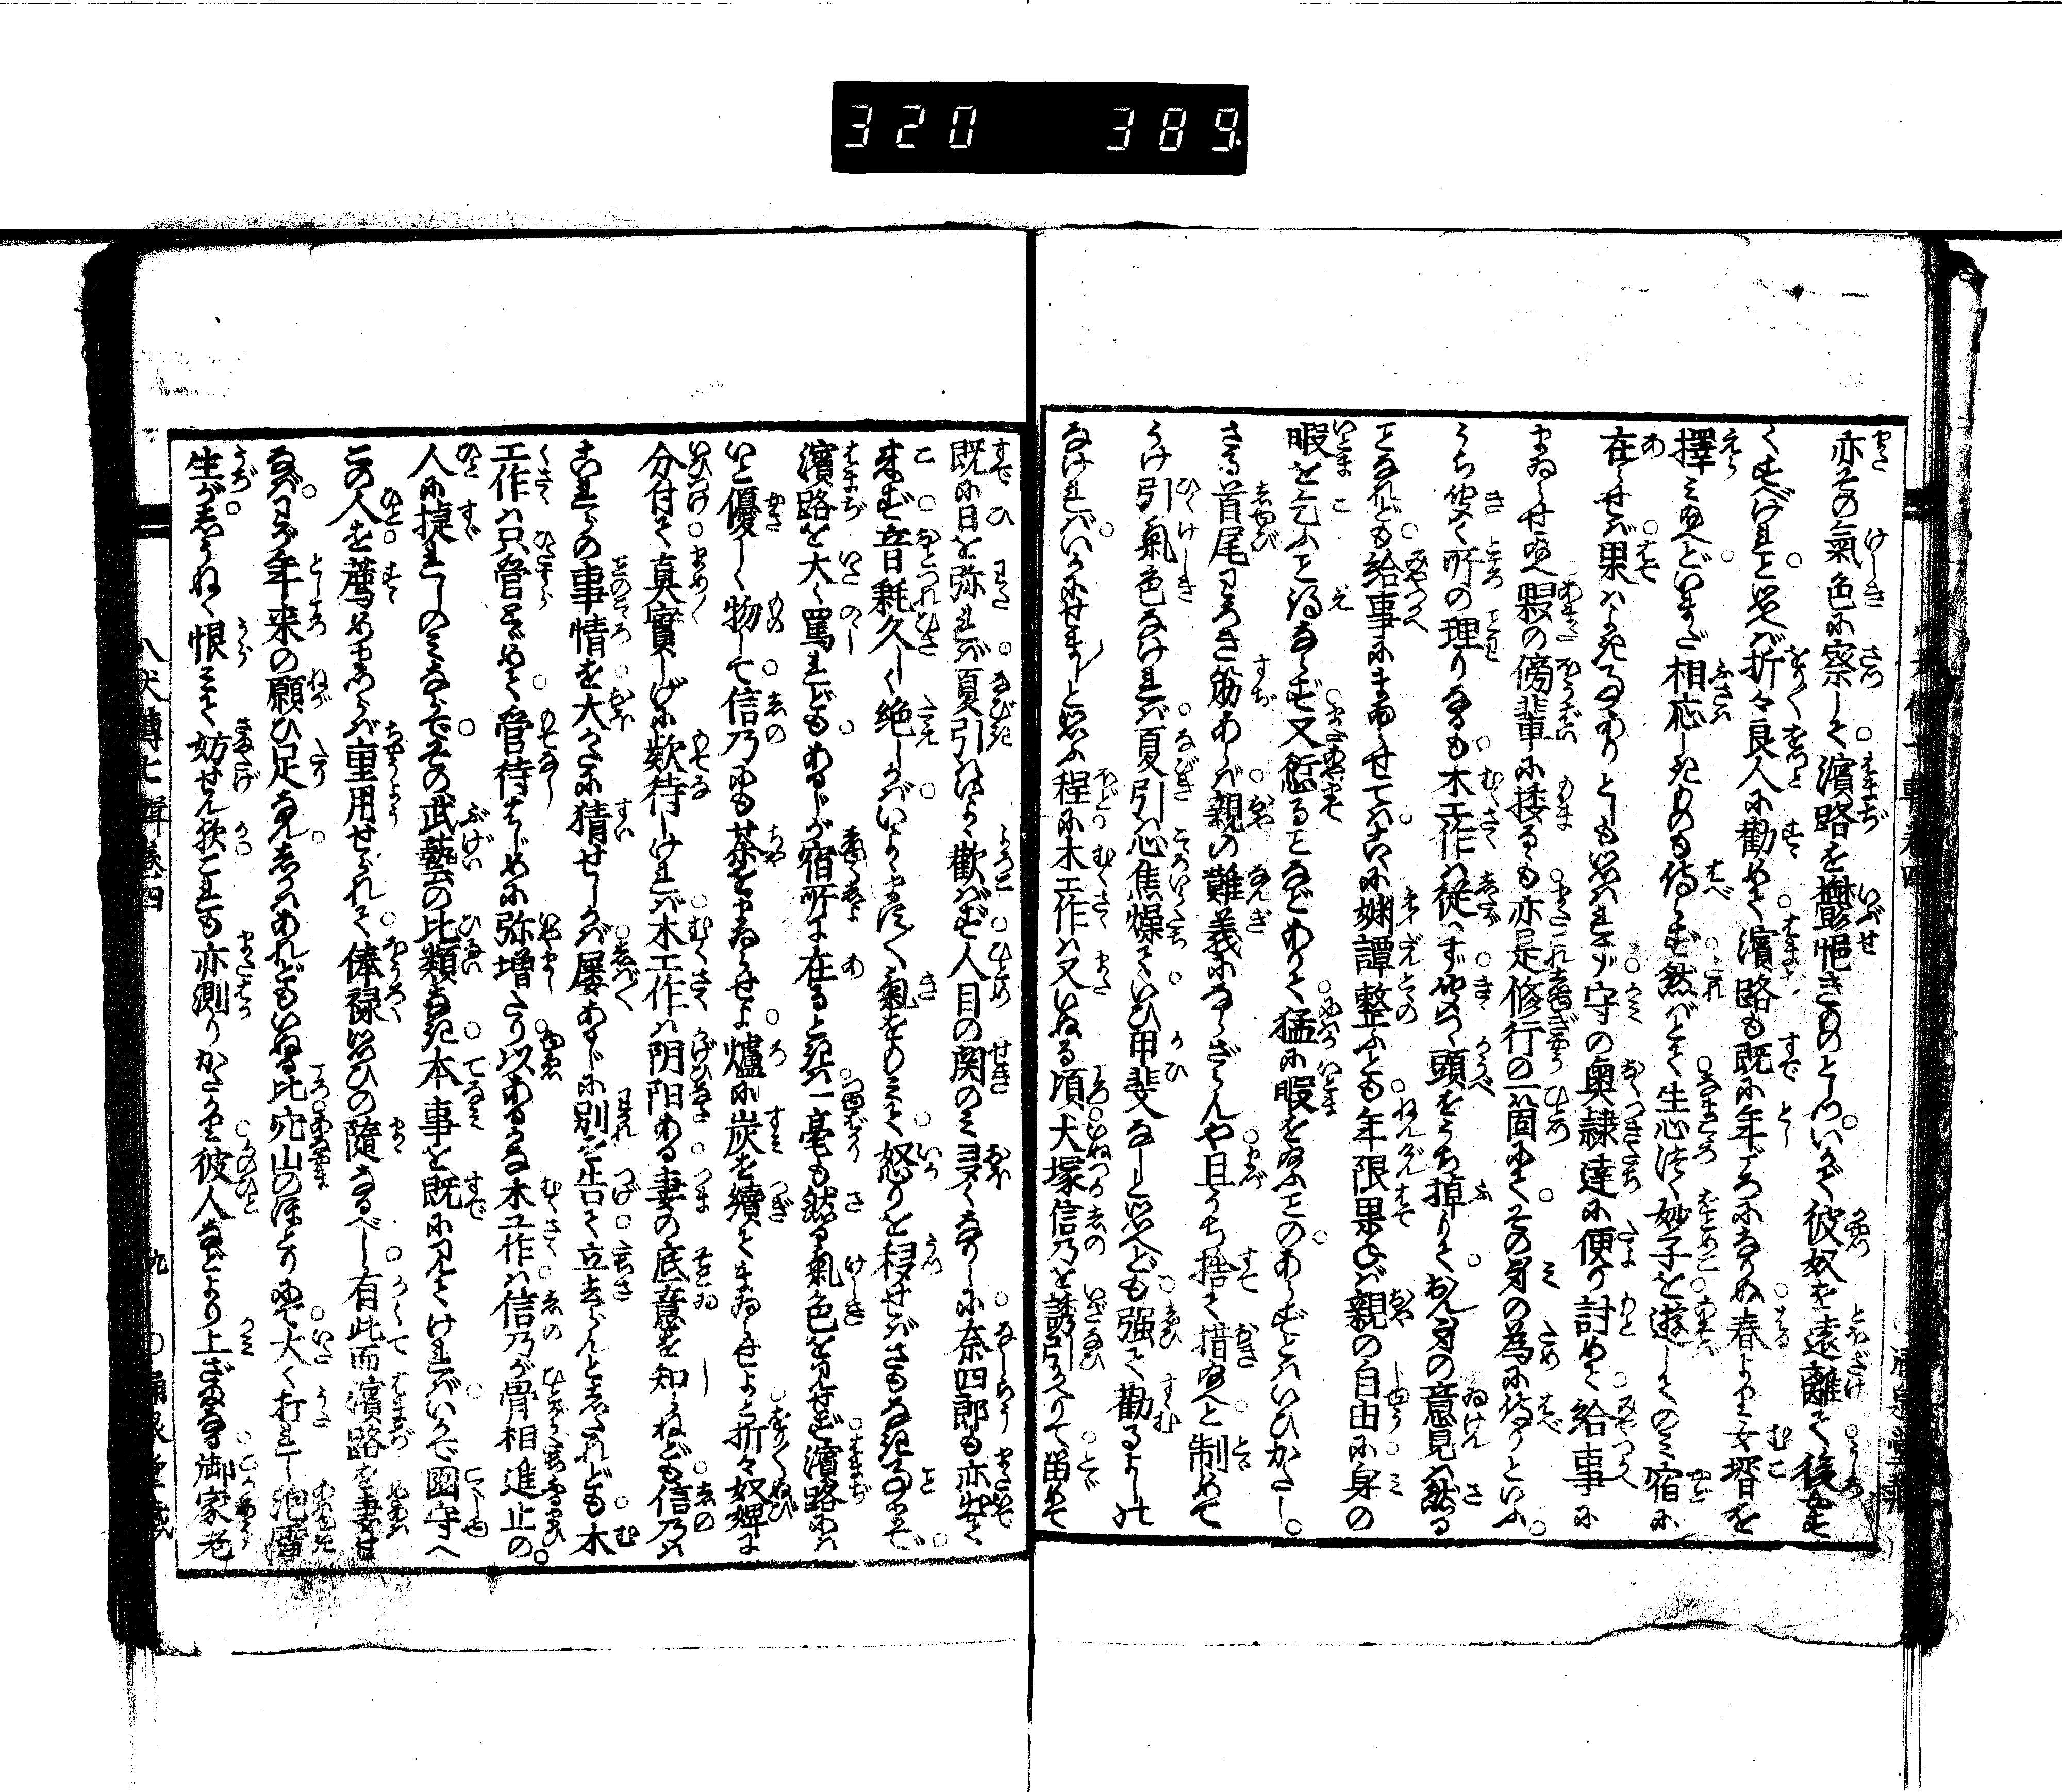 320 389.
亦その氣色に察して濱路を欝悒きものとしついかで彼奴を遠離て後安
くすべけれと思へば折々良人に勸めて濱路も既に年ごろになりぬ春より女壻を
擇み給へどいまだ相応しきものも侍らず然ばとて生心つく妙子を遊してのみ宿に
在らせば果はよき事ありとしも思はれず守の奥隷達に便り討めて給事に
まゐらせ給へ夥の傍輩に揉るゝも亦是修行の一箇にてその身の為に侍りといふ
うち聴く所の理りなるも木工作は従はず聴つゝ頭をうち掉りておん身の意見は然る
ことなれども給事にまゐらせては小に婣譚整ふとも年限果ねば親の自由に身の
暇を乞ふことを得ならず又愆ることなどありて猛に暇を給ふことのあらずとはいひかたし
さる首尾わろき筋あらば親の難義にならざらんや且うち捨て措給へと制めて
うけ引く氣色なければ夏引は心焦燥ていひ甲斐なしと思へども強て勸るよしも
なければいかにせましと思ふ程に木工作は又いぬる頃犬塚信乃を誘引かへりて畄めて
既に日を弥れば夏引はよに歡ばず人目の関のみヨタくなりしに奈四郎も亦絶て
来ず音耗久しく絶しかばいよゝますく氣をのみて怒りを移せばさもなき事にまで
濱路を太く罵れどもあるじが宿所に在るときは一毫も然る氣色を見せず濱路には
いと優しく物して信乃にも茶をまゐらせよ爐に炭を續てまゐらせよと折々奴婢に
分付て真實しげに欵待しければ木工作は阴阳ある妻の底意を知らねども信乃は
これらの事情を大かたに猜せしかば屡あるじに別を告て立去らんとしたれども木
工作は只管とゞめて管待はじめに弥増たり以あるかな木工作は信乃が骨相進止の
人に捷れしのみならでその武藝の比類なき本事を既に見てければいかで國守へ
この人を薦めまゐらば重用せられて俸禄思ひの隨なるべし有此而濱路を妻せ
なばわが年来の願ひ足なんしかはあれどもいぬる比穴山のほとりにて太く打れし泡雪
生がしうねく恨みて妨せん歟これも亦測りかたかり彼人などより上ざまなる御家老
八犬傳七輯巻四
九